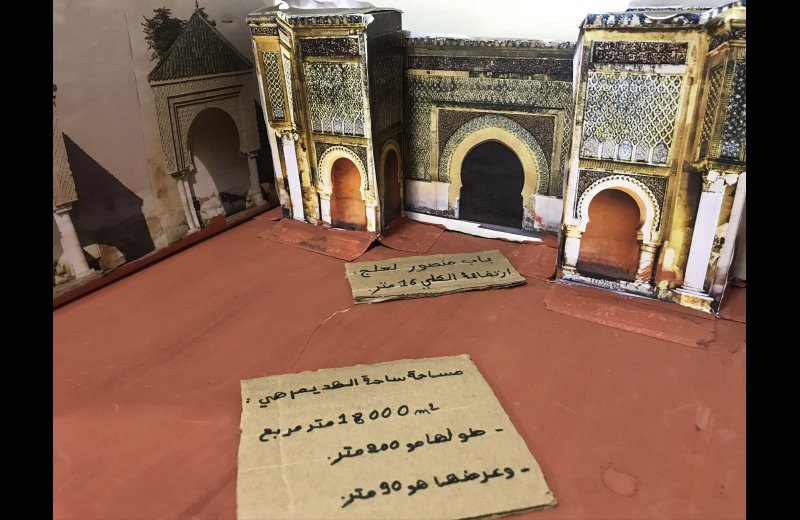 باب منصور لعلج.
ارتفاقة الكلي 16 متر.
مساحة ساحة الهديم هي :
18000 m² متر مربع
- طولها هو 200 متر.
- وعرضها هو 90 متر.